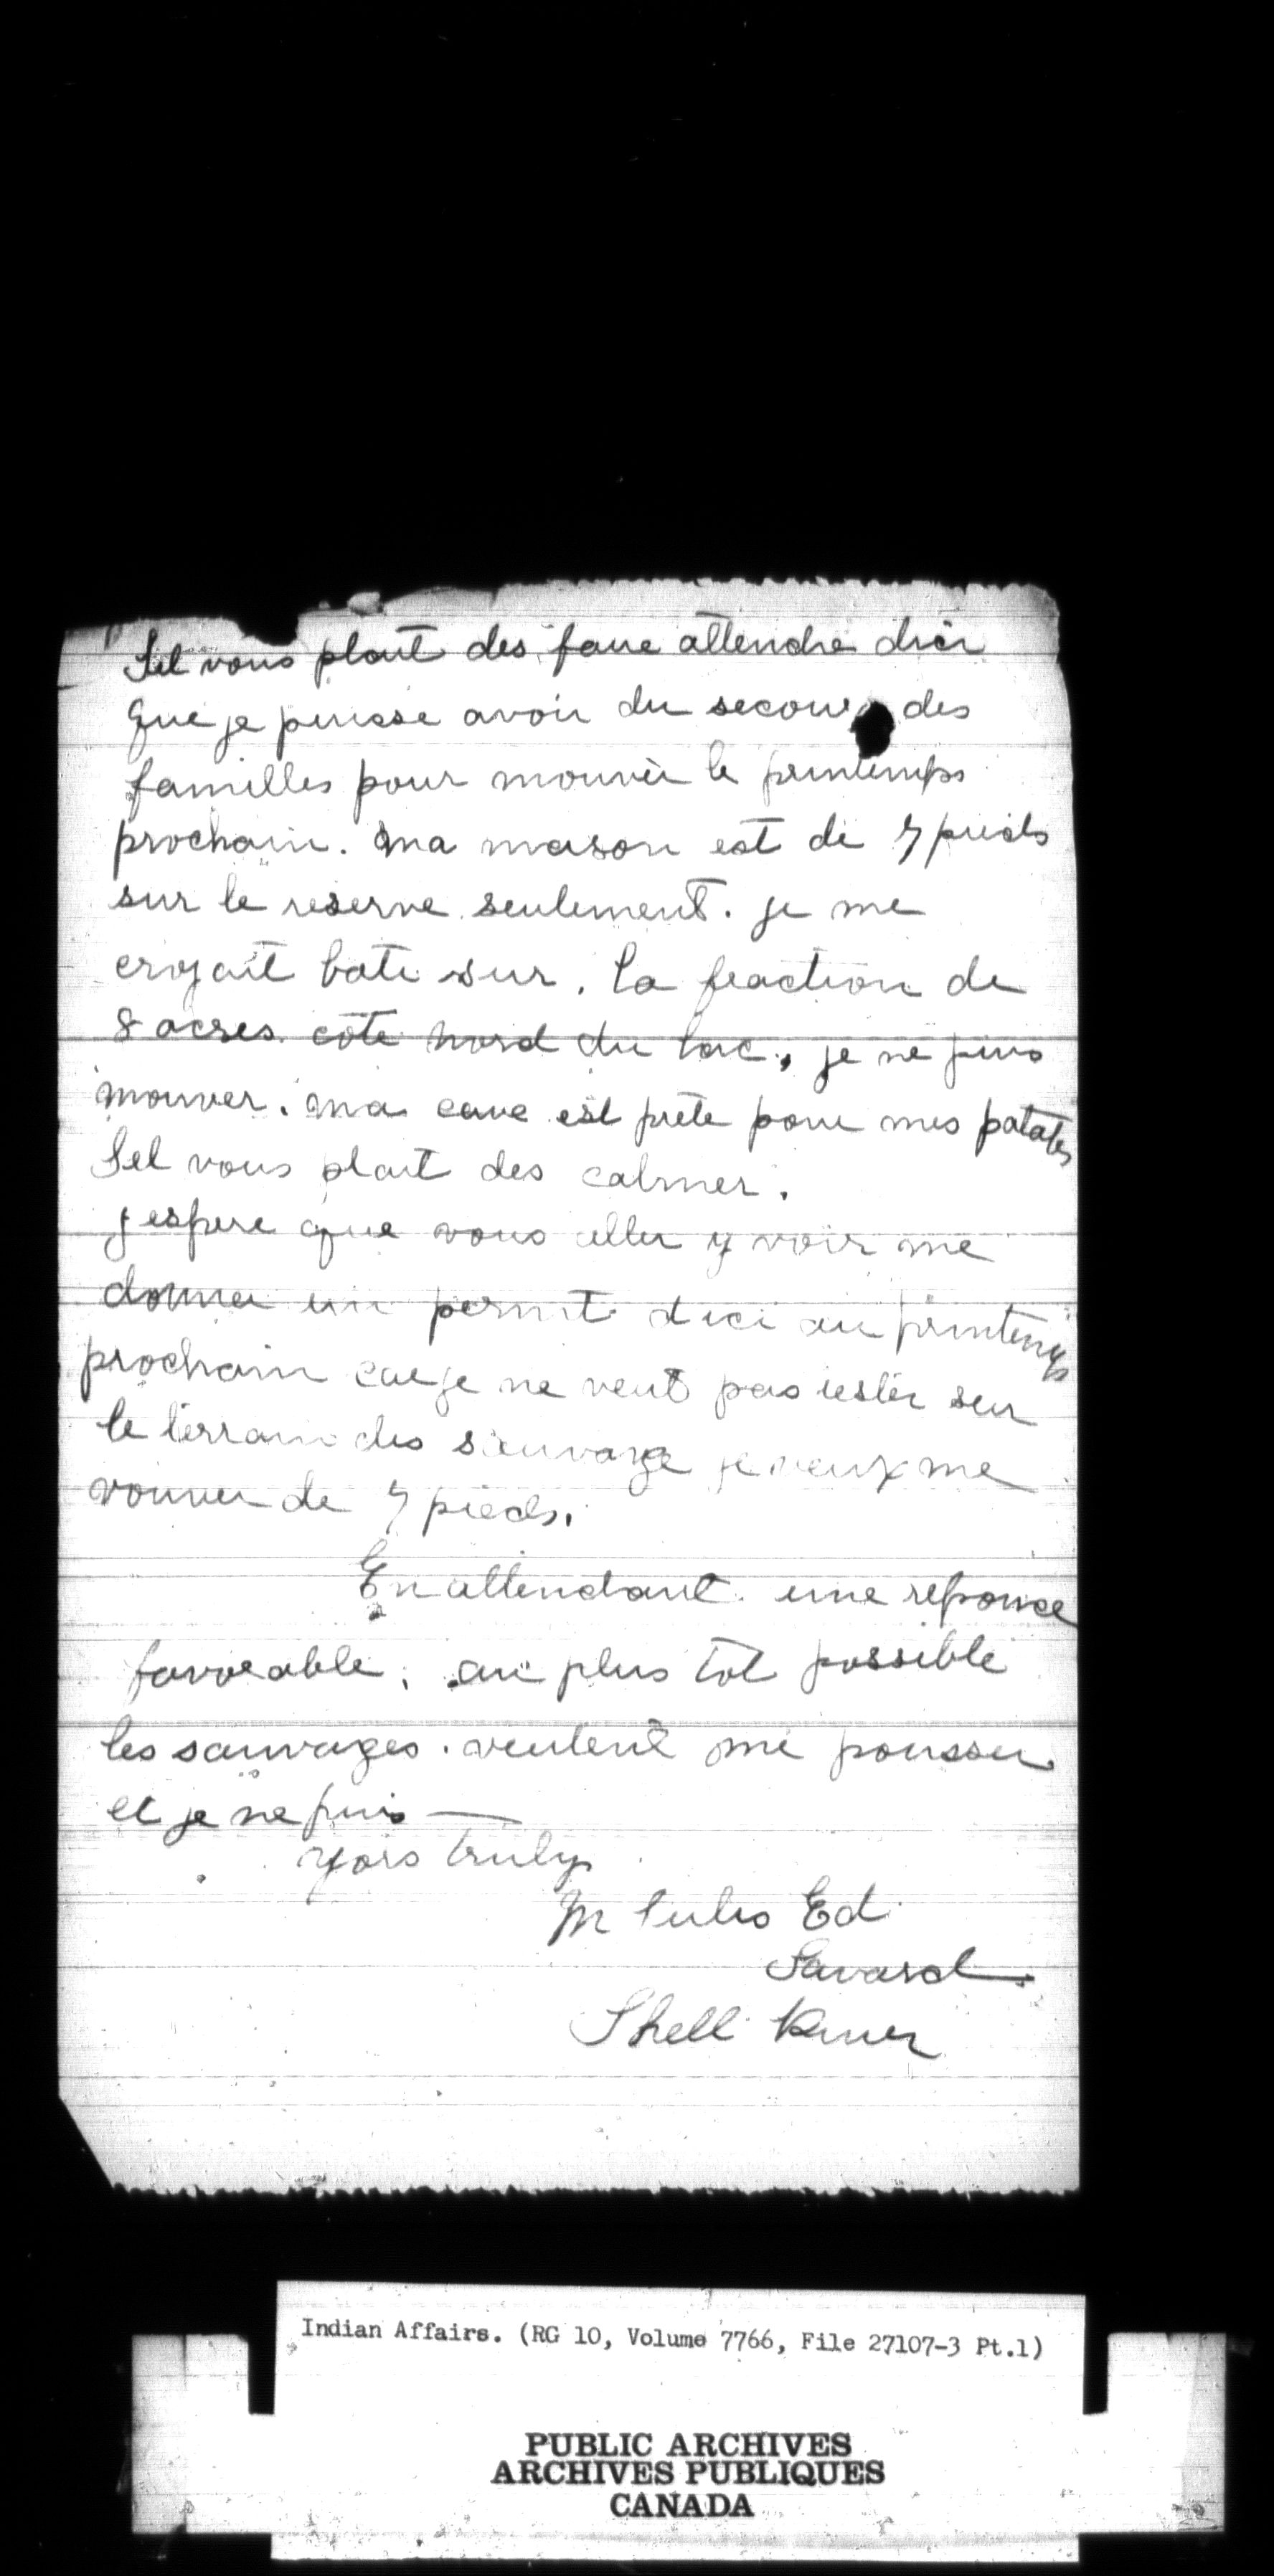 Sil vous plait des faire attendre dici
que je puisse avoir du secours des
familles pour mouver le printemps
prochain. ma maison est de 7 pieds
sur le reserve seulement. je me
croyait bati sur. la fraction de
8 acres coté nord du lac, je ne puis
mouver. ma cave est prete pour mes patates
Sil vous plait des calmer.
j espere que vous aller y voir me
donner un permit dici au printemps
prochain car je ne veut pas rester sur
le terrain des sauvage je veux me
mouver de 7 pieds.
En attendant une reponce
favorable, au plus tôt possible
les sauvages veulent me pousser
et je ne puis —
Yors truly
Ed
Savard
Shell River
Indian Affairs. (RG 10, Volume 7766, File 27107-3 Pt.1)
PUBLIC ARCHIVES
ARCHIVES PUBLIQUES
CANADA